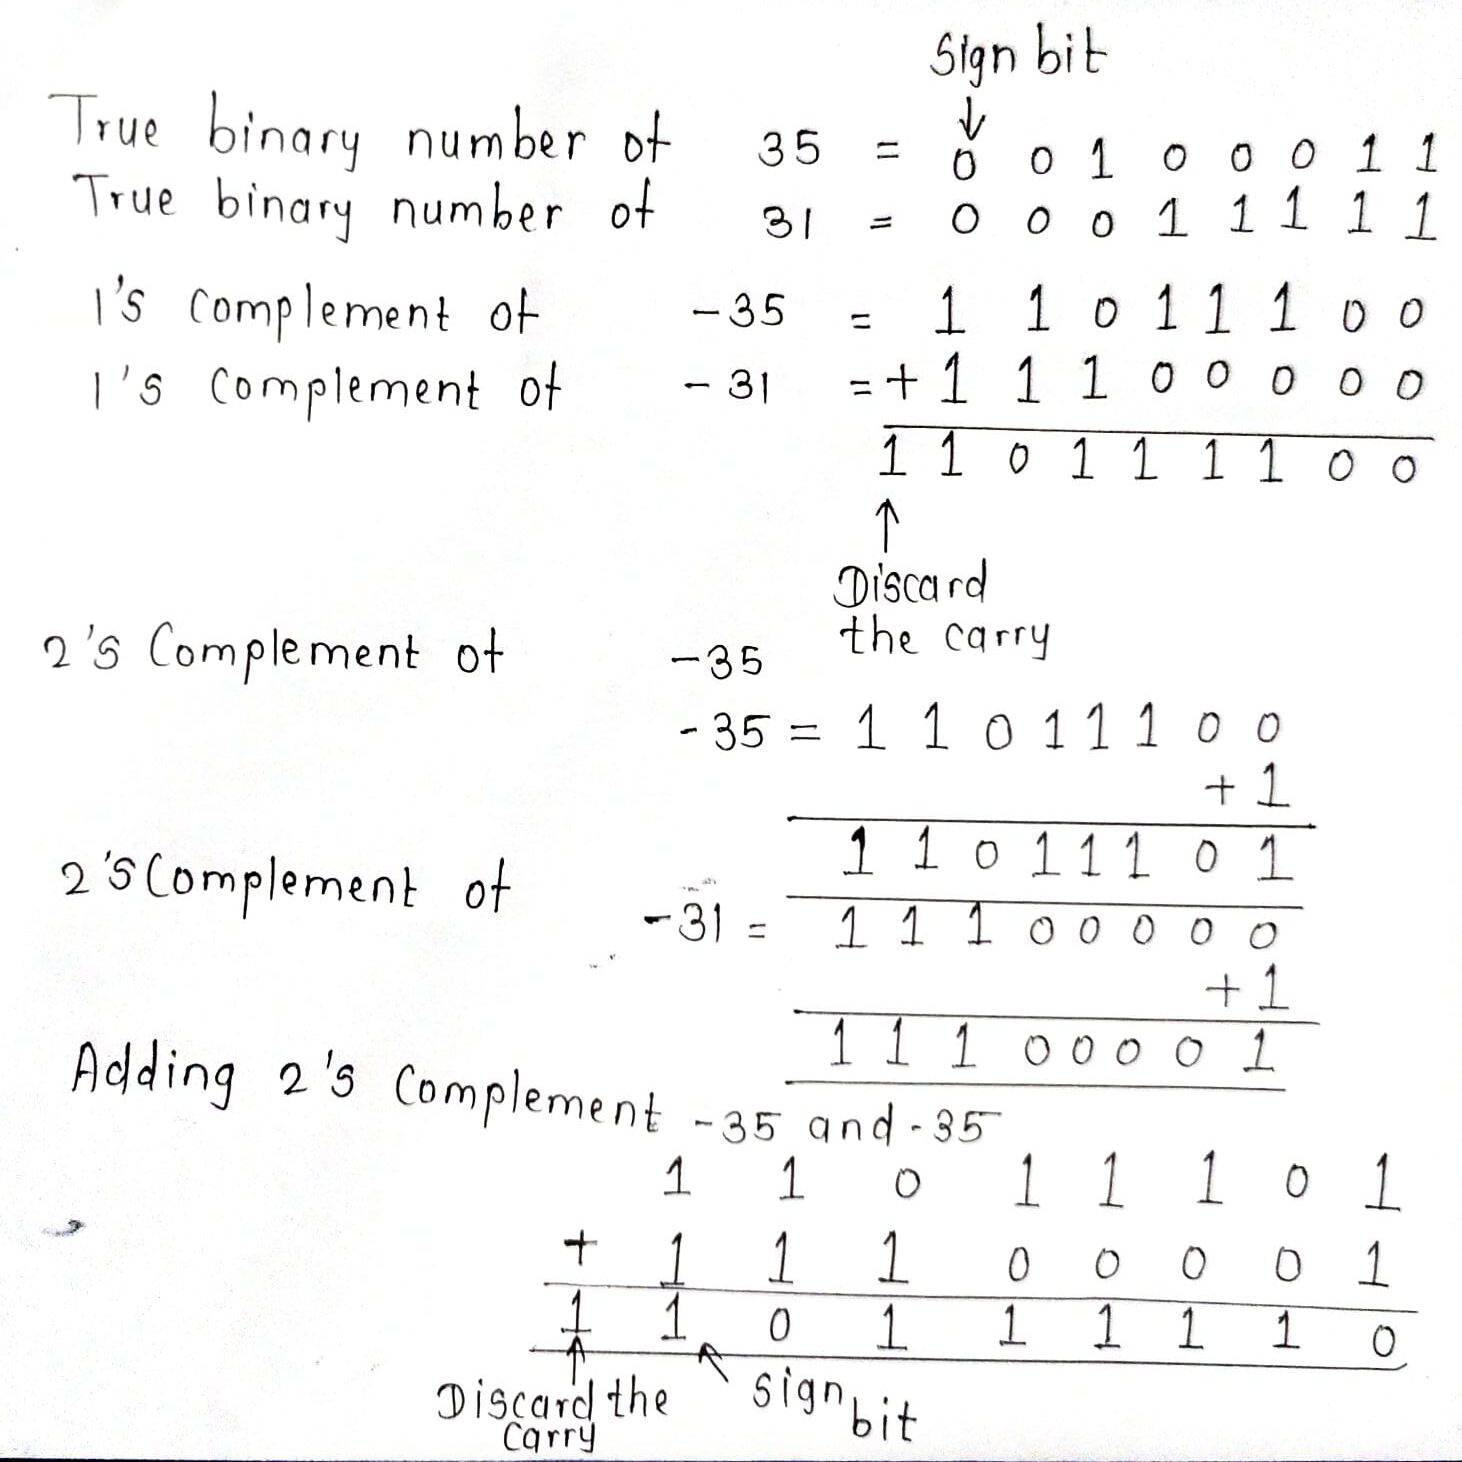 Sign bit
↓
True binary number of 35 = 0 0 1 0 0 0 1 1
True binary number of 31 = 0 0 0 1 1 1 1 1
1's complement of -35 = 1 1 0 1 1 1 0 0
1's complement of -31 = + 1 1 1 0 0 0 0 0
1 1 0 1 1 1 1 0 0
↑
Discard
the carry
2's Complement of -35
-35 = 1 1 0 1 1 1 0 0
+ 1
1 1 0 1 1 1 0 1
2's Complement of -31 = 1 1 1 0 0 0 0 0
+ 1
1 1 1 0 0 0 0 1
Adding 2's Complement -35 and -35
1 1 0 1 1 1 0 1
+ 1 1 1 0 0 0 0 1
1 1 0 1 1 1 1 1 0
Discard the carry
sign bit